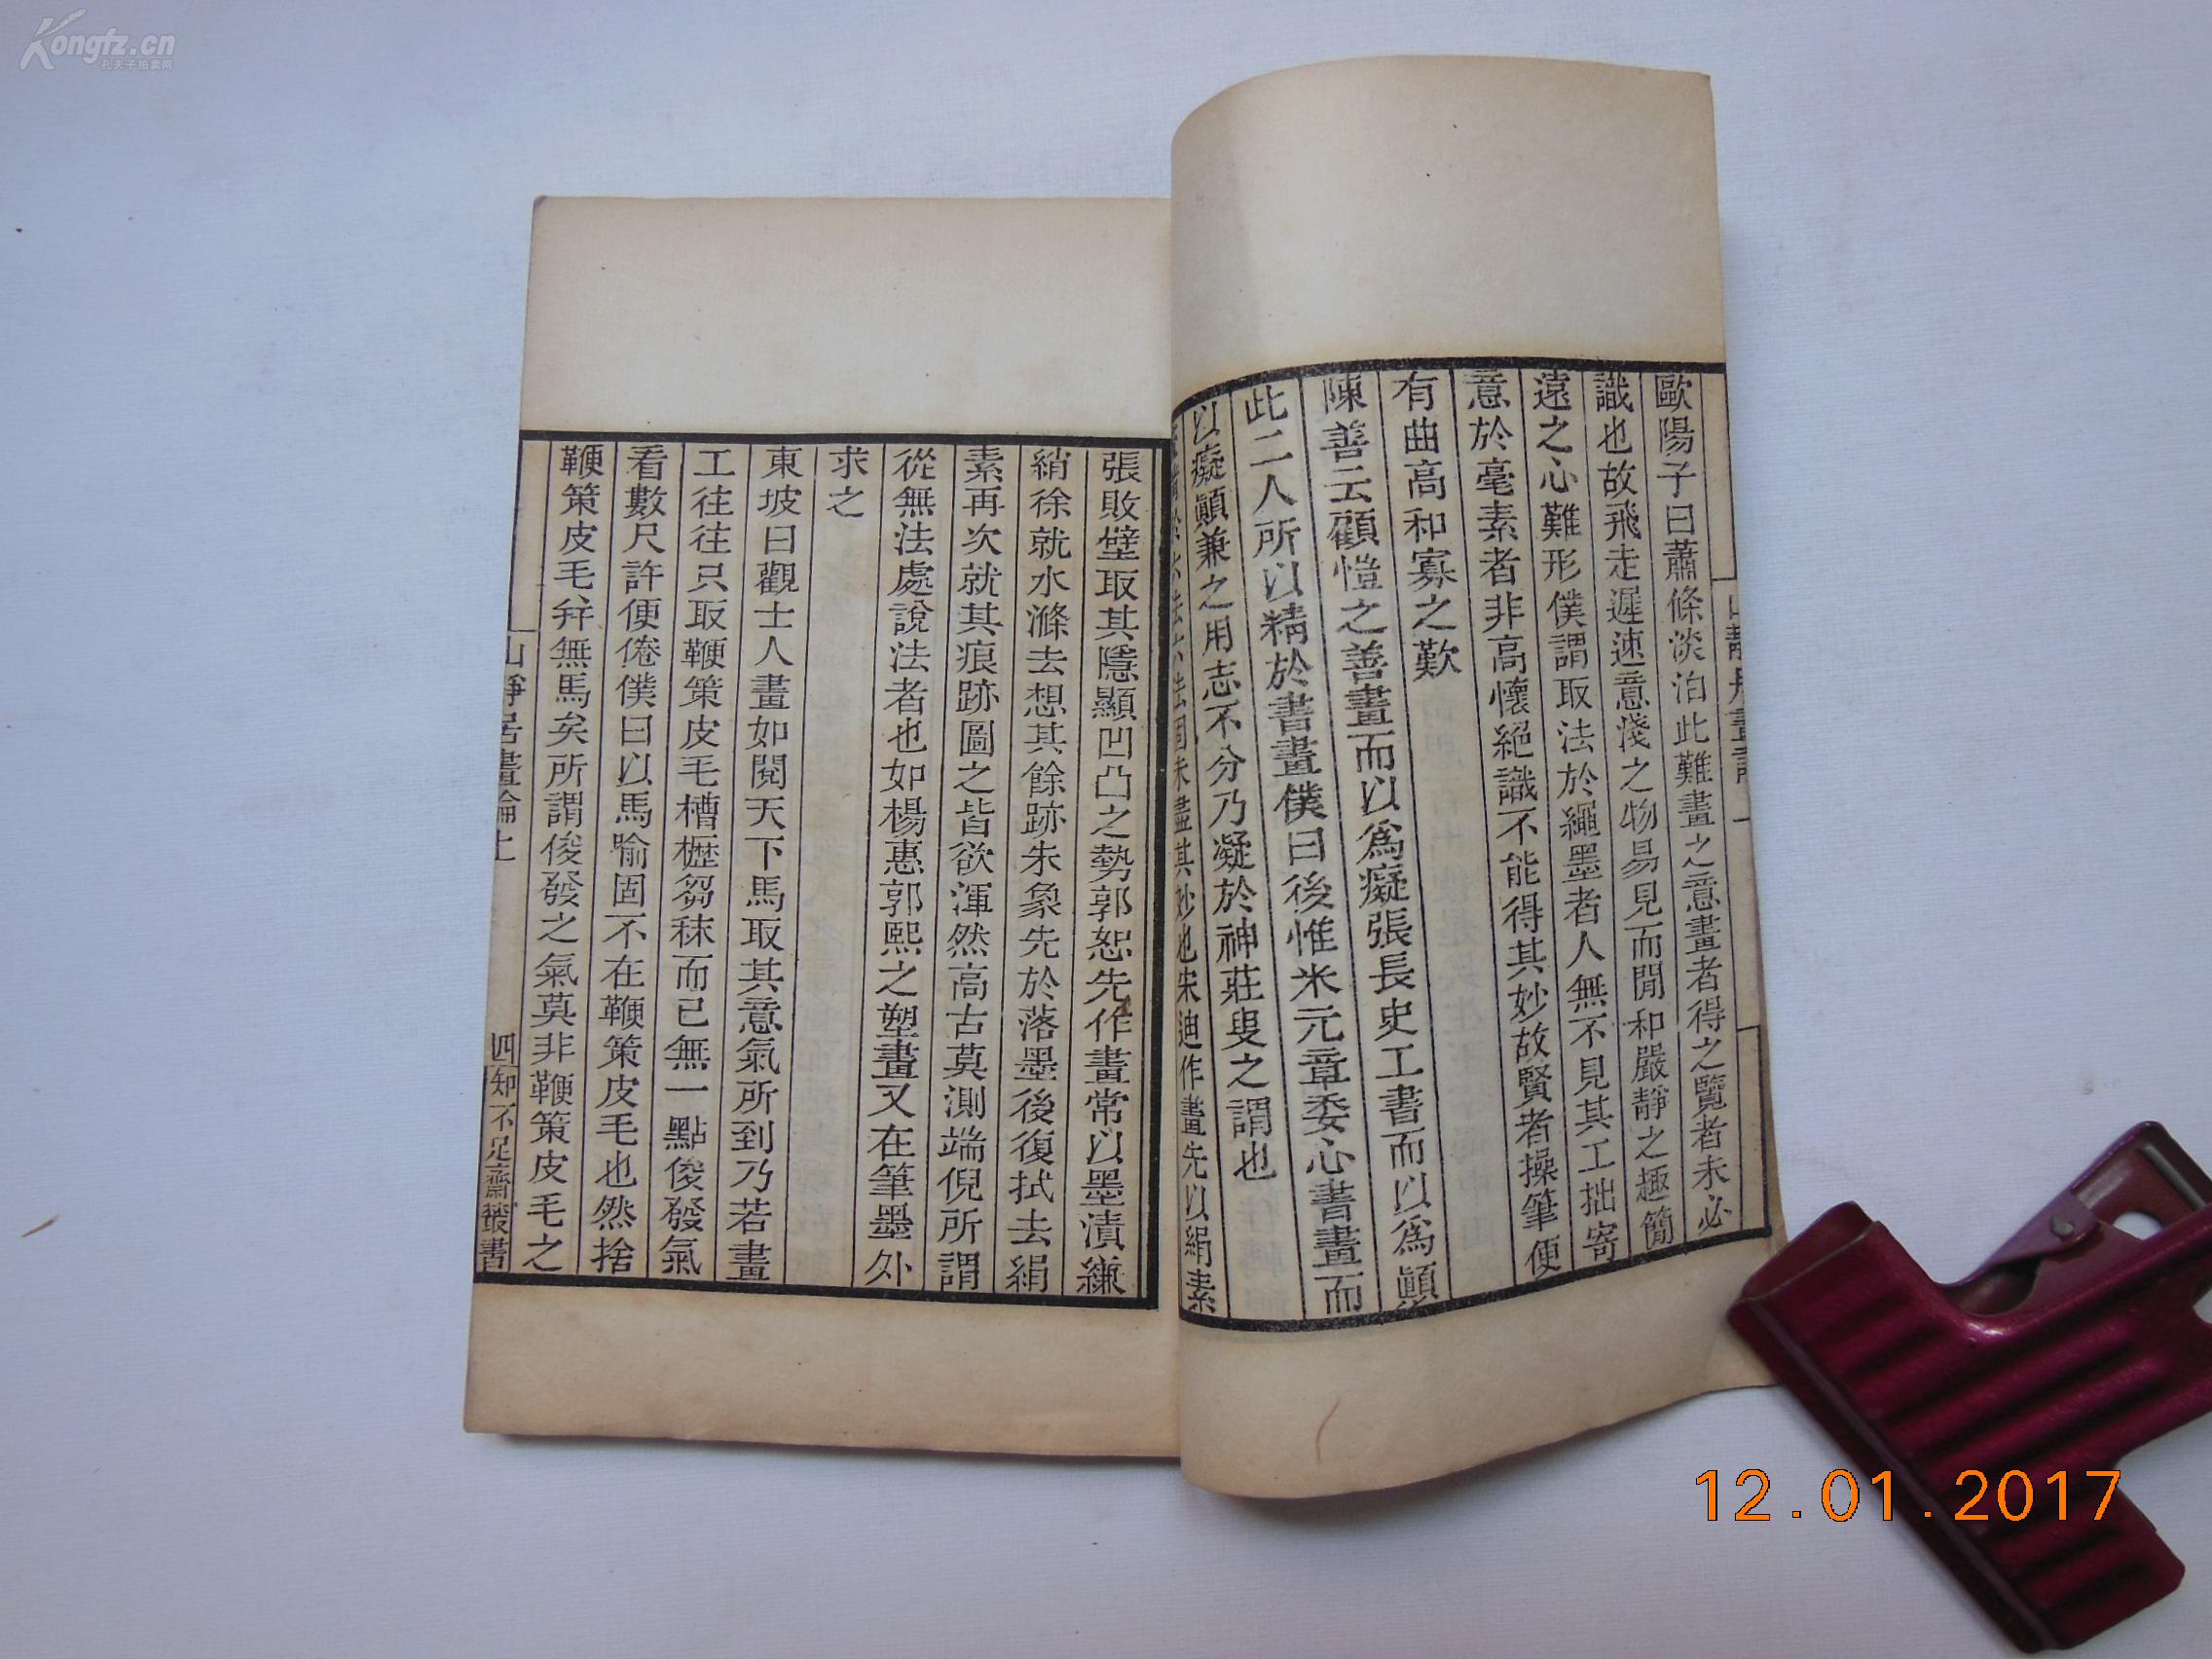 Kongfz.cn
孔夫子拍卖网
歐陽子曰蕭條淡泊此難畫之意畫者得之覽者未必
識也故飛走遲速意淺之物易見而閒和嚴靜之趣簡
遠之心難形僕謂取法於繩墨者人無不見其工拙寄
意於毫素者非高懷絕識不能得其妙故賢者操筆便
有曲高和寡之歎
陳善云顧愷之善畫而以爲癡張長史工書而以爲顚
此二人所以精於書畫僕曰後惟米元章委心書畫而
以癡顚兼之用志不分乃凝於神莊叟之謂也
法固未盡其妙也宋迪作畫先以絹素
張敗壁取其隱顯凹凸之勢郭恕先作畫常以墨漬縑
綃徐就水滌去想其餘跡朱象先於落墨後復拭去絹
素再次就其痕跡圖之皆欲渾然高古莫測端倪所謂
從無法處說法者也如楊惠郭熙之塑畫又在筆墨外
求之
東坡曰觀士人畫如閱天下馬取其意氣所到乃若畫
工往往只取鞭策皮毛槽櫪芻秣而已無一點俊發氣
看數尺許便倦僕曰以馬喻固不在鞭策皮毛也然捨
鞭策皮毛并無馬矣所謂俊發之氣莫非鞭策皮毛之
山靜居畫論上
四
知不足齋叢書
12.01.2017